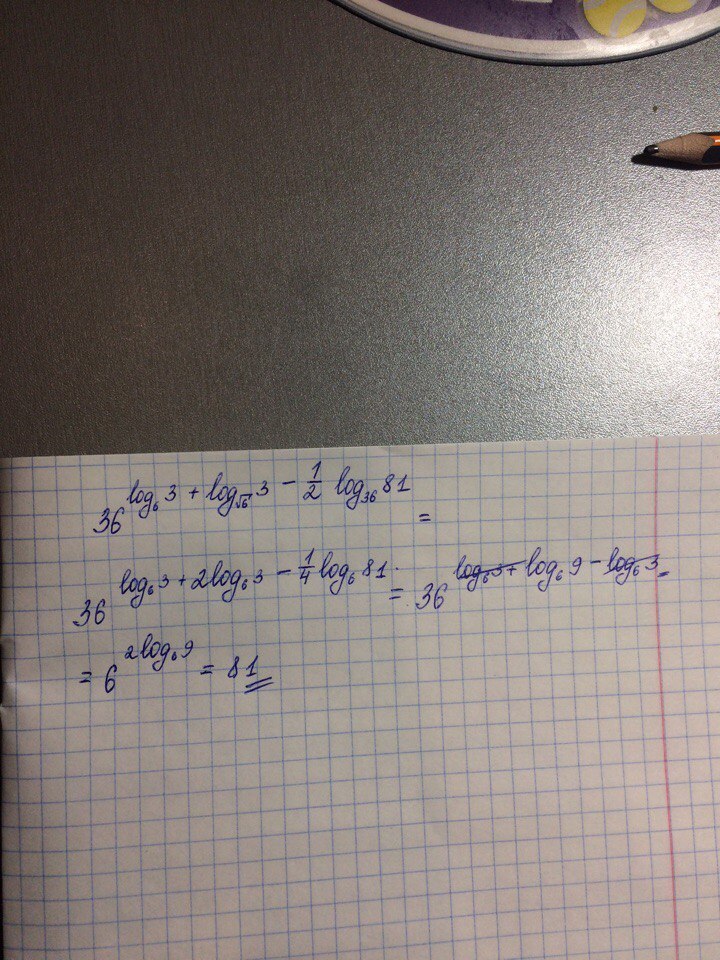 36^(log₆3 + log_√6 3 − 1/2 log₃₆81) =
36^(log₆3 + 2log₆3 − 1/4 log₆81) = 36^(log₆3 + log₆9 − log₆3) =
= 6^(2log₆9) = 81